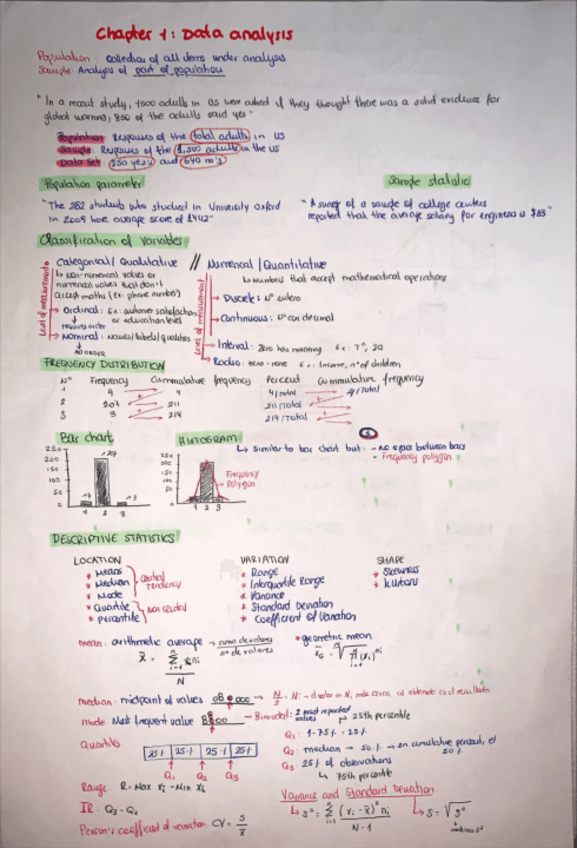 Chapter 1: Data analysis
Population: Collection of all items under analysis
Sample: Analysis of part of population
"In a recent study, 1500 adults in US were asked if they thought there was a solid evidence for
global warming, 850 of the adults said yes"
Population: Responses of the total adults in US
Sample: Responses of the 1,500 adults in the US
Data set: 850 yes's and 640 no's
Population parameter
Sample statistic
"The 282 students who studied in University Oxford
in 2009 have average score of 1442"
"A survey of a sample of college centers
reported that the average salary for engineers is $83"
Classification of variables
Categorical / Qualitative // Numerical / Quantitative
↳ Non-numerical values or
numerical values that don't
accept maths (ex: phone number)
↳ Numbers that accept mathematical operations
Level of measurement
→ Ordinal: Ex: customer satisfaction
or education level
↳ requires order
→ Nominal: names/labels/qualities
↳ NO ORDER
Levels of measurement
→ Discrete: Nº entero
→ Continuous: Nº con decimal
→ Interval: Zero has meaning Ex: Tº, IQ
→ Radio: zero = none Ex: Income, nº of children
FREQUENCY DISTRIBUTION
Nº Frequency Cummulative frequency Percent Cummulative frequency
1 4 4 4/total 4/total
2 207 211 211/total
3 3 214 214/total
Bar chart
250
200
150
100
50
0
4 207 3
1 2 3
HISTOGRAM
250
200
150
100
50
1 2 3
Frequency
polygon
↳ Similar to bar chart but: - No space between bars
- Frequency polygon
DESCRIPTIVE STATISTICS
LOCATION
* Means
* Median
* Mode
central
tendency
* Quartile
* Percentile
non central
VARIATION
* Range
* Interquartile Range
* Variance
* Standard Deviation
* Coefficient of Variation
SHAPE
* Skewness
* Kurtosis
mean: arithmetic average → suma de valores / nº de valores
x̄ = Σ xi ni / N
* geometric mean
x̄G = ᴺ√π(xi)^ni
median: midpoint of values
N/2
mode: Most frequent value
→ Bimodal: 2 most repeated
values
Quartile
25% 25% 25% 25%
Q1 Q2 Q3
↳ 25th percentile
Q1: 1-75% = 25%
Q2: median → 50% → en cumulative percent, el
50%
Q3 25% of observations
↳ 75th percentile
Range R = Max xi - Min xi
IR: Q3 - Q1
Person's coefficient of variation CV = S/x̄
Variance and Standard Deviation
↳ S² = Σ (xi - x̄)² ni / N-1
↳ S = √S²